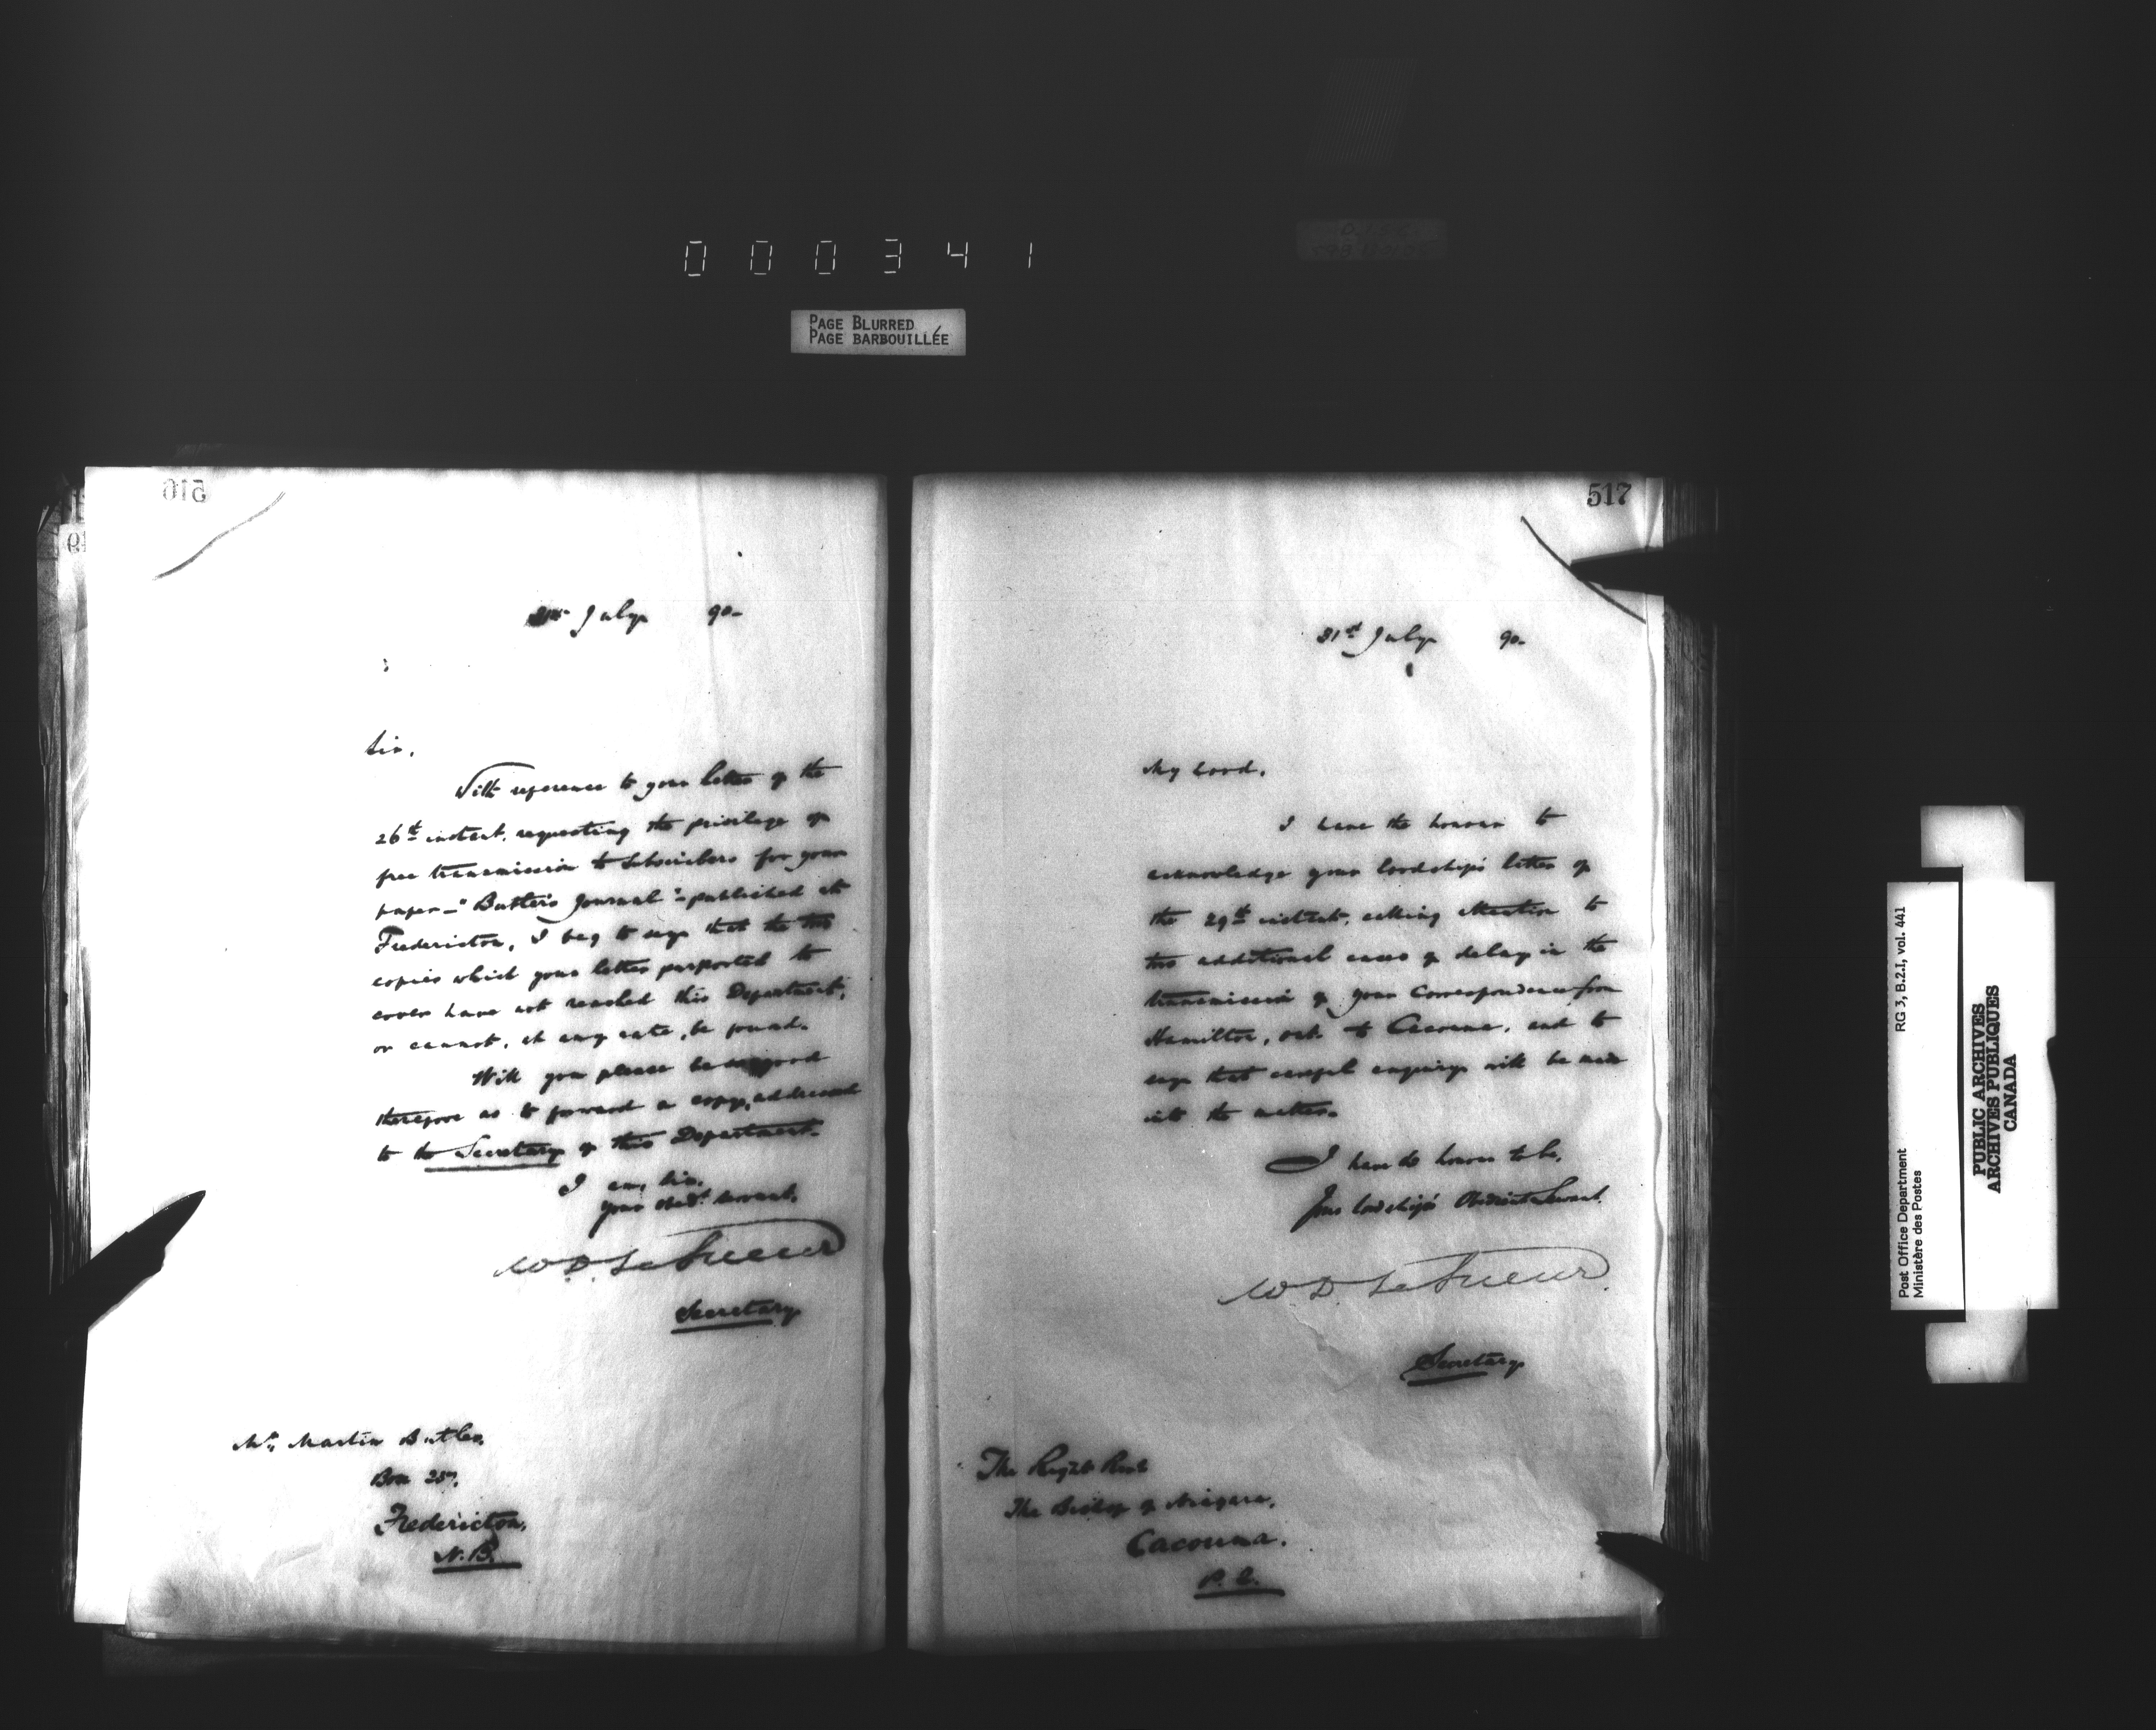 000341
PAGE BLURRED
PAGE BARBOUILLÉE
516
31st July 90-
Sir,
With reference to your letter of the
26th instant, requesting the privilege of
free transmission to Subscribers for your
paper - "Butler's Journal" - published at
Fredericton, I beg to say that the two
copies which your letter purported to
cover have not reached this Department,
or cannot, at any rate, be found.
Will you please be so good
therefore as to forward a copy, addressed
to the Secretary of this Department.
I am, Sir,
Your Obedt. Servant,
W D LeSueur
Secretary
Mr. Martin Butler,
Box
Fredericton,
N.B.
517
31st July 90-
My Lord,
I have the honour to
acknowledge your Lordship's letter of
the 29th instant, calling attention to
two additional cases of delay in the
transmission of your Correspondence from
Hamilton, Ont. to Cacouna, and to
say that careful enquiry will be made
into the matter.
I have the honour to be,
Your Lordship's Obedient Servant,
W. D. LeSueur
Secretary
The Right Revd
The Bishop of Niagara,
Cacouna.
P. Q.
Post Office Department
Ministère des Postes
RG 3, B.2.I, vol. 441
PUBLIC ARCHIVES
ARCHIVES PUBLIQUES
CANADA